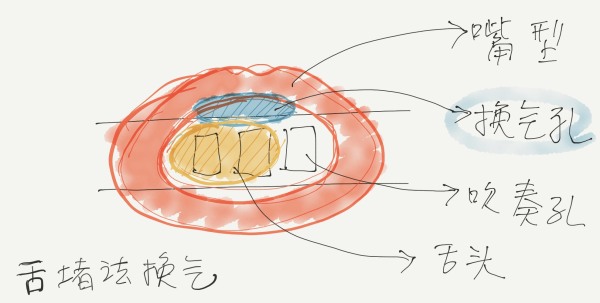 嘴型
换气孔
吹奏孔
舌头
舌堵法换气